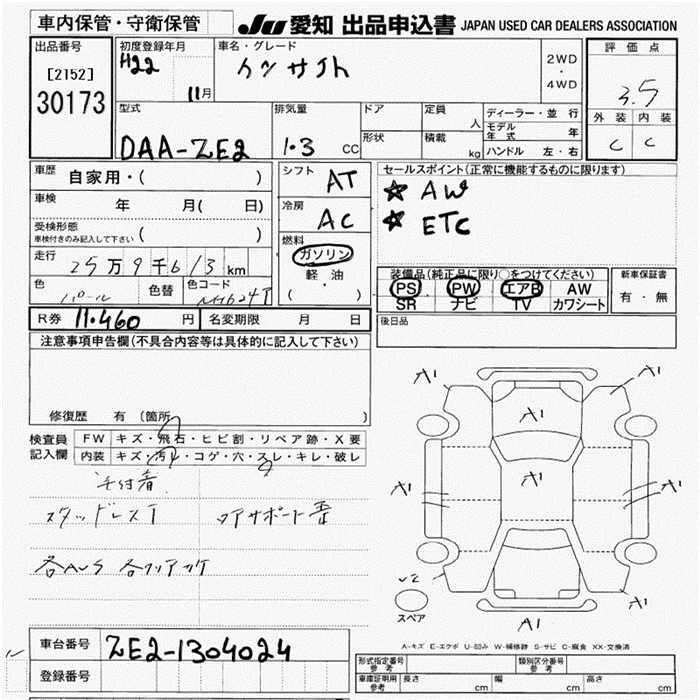 車内保管・守衛保管
JU 愛知 出品申込書 JAPAN USED CAR DEALERS ASSOCIATION
出品番号
[2152]
30173
初度登録年月
H22
11月
車名・グレード
インサイト
2WD
・
4WD
評価点
3.5
外装 内装
C C
型式
DAA-ZE2
排気量
1.3 CC
ドア
形状
定員
人
積載
kg
ディーラー・並行
モデル年式 年
ハンドル 左・右
車歴
自家用・( )
車検
年 月( 日)
受検形態
車検付きのみ記入して下さい ( )
走行
25万9千613km
色
パール
色替
色コード
シフト
AT
冷房
AC
燃料
ガソリン
軽油
( )
セールスポイント(正常に機能するものに限ります)
☆ AW
☆ ETC
装備品(純正品に限り○をつけてください)
PS PW エアB AW
SR ナビ TV カワシート
新車保証書
有・無
後日品
R券 11.460 円
名変期限 月 日
注意事項申告欄(不具合内容等は具体的に記入して下さい)
修復歴 有(箇所 )
検査員
記入欄
FW キズ・飛石・ヒビ割・リペア跡・X要
内装 キズ・汚レ・コゲ・穴・スレ・キレ・破レ
スタッドレスT
A1 A1
A1
A1
A1 A1
A1
スペア
A-キズ E-エクボ U-凹み W-補修跡 S-サビ C-腐食 XX-交換済
車台番号
ZE2-1304024
登録番号
形式指定番号
参考
類別区分番号
参考
車庫証明用
参考
長さ cm
幅 cm
高さ cm